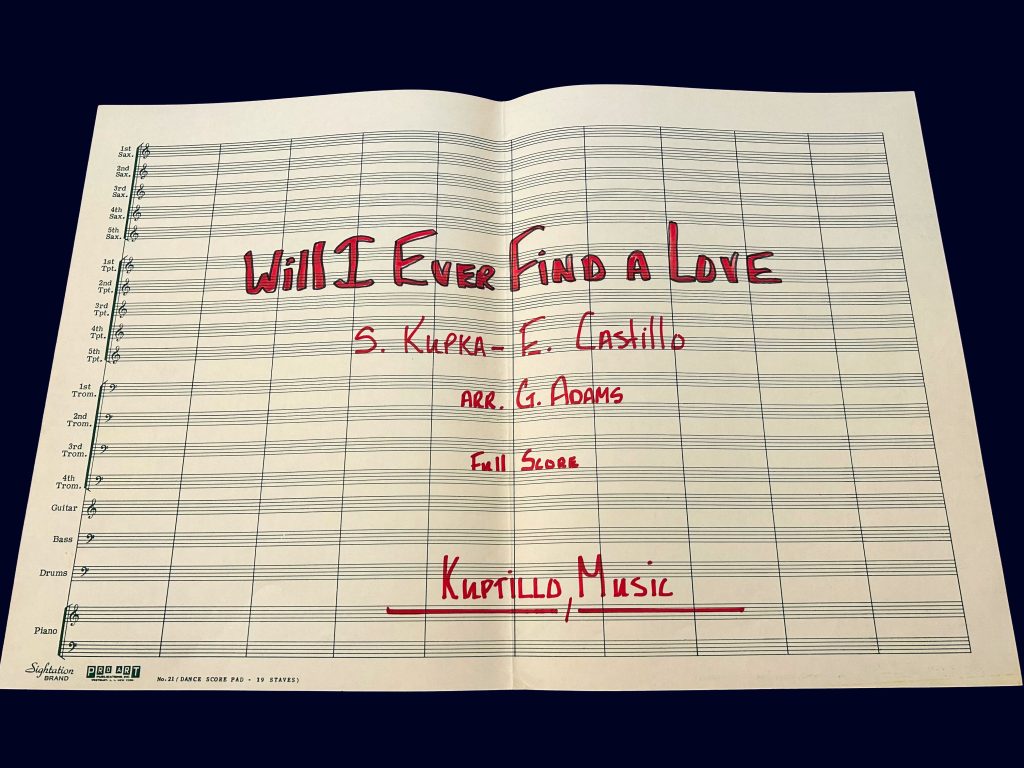 1st Sax.
2nd Sax.
3rd Sax.
4th Sax.
5th Sax.
1st Tpt.
2nd Tpt.
3rd Tpt.
4th Tpt.
5th Tpt.
1st Trom.
2nd Trom.
3rd Trom.
4th Trom.
Guitar
Bass
Drums
Piano
Will I Ever Find a Love
S. Kupka - E. Castillo
arr. G. Adams
Full Score
Kuptillo Music
Sightation BRAND
PRO ART
No. 21 (DANCE SCORE PAD - 19 STAVES)